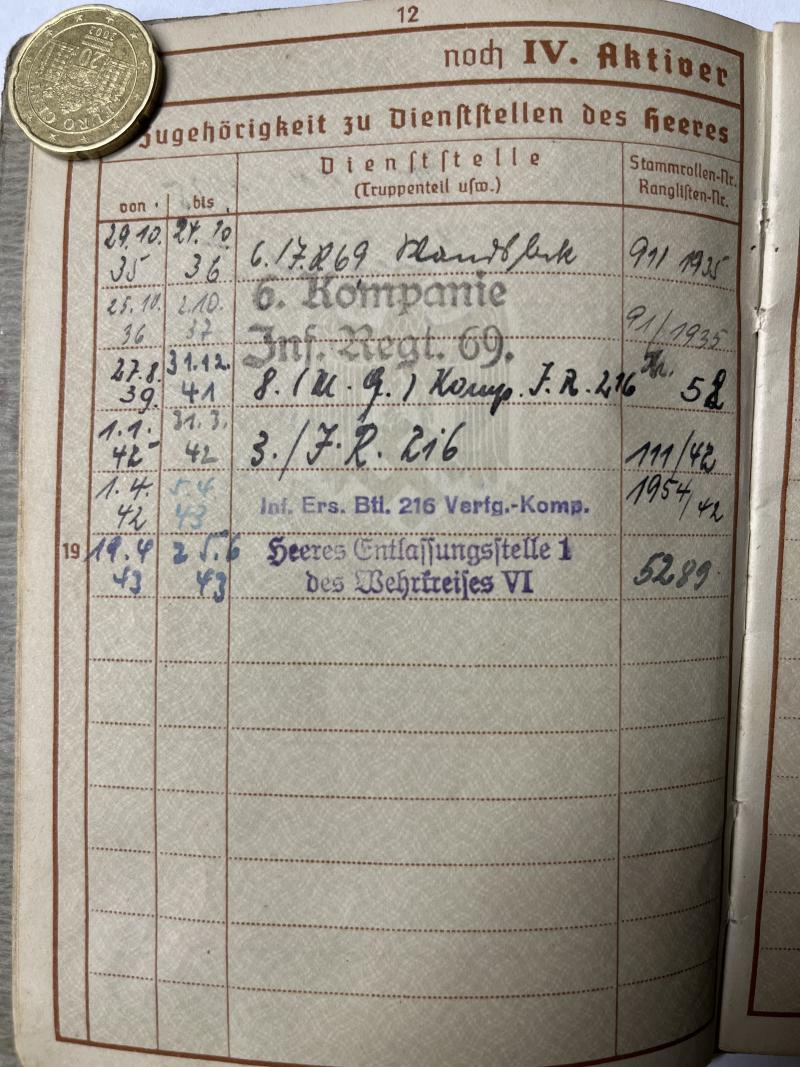 2003
20
EURO CENT
12
noch IV. Aktiver
Zugehörigkeit zu Dienststellen des Heeres
von bis
Dienststelle
(Truppenteil usw.)
Stammrollen-Nr.
Ranglisten-Nr.
29.10. 35 24.10 36 6./I.R 69 Wandsbek 911 1935
25.10. 36 2.10. 37 6. Kompanie
Inf. Regt. 69. 91/1935
27.8. 39. 31.12. 41 8. (M. G.) Komp. I.R. 216 Nr. 52
1.1. 42 31.3. 42 3./I.R. 216 111/42
1.4. 42 5.4 43 Inf. Ers. Btl. 216 Verfg.-Komp. 1954/42
19 19.4 43 25.6 43 Heeres Entlassungsstelle 1
des Wehrkreises VI 5289